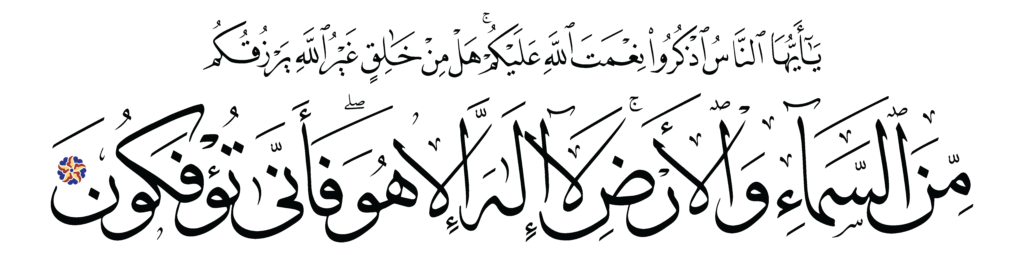 يَٰٓأَيُّهَا ٱلنَّاسُ ٱذْكُرُوا۟ نِعْمَتَ ٱللَّهِ عَلَيْكُمْ ۚ هَلْ مِنْ خَٰلِقٍ غَيْرُ ٱللَّهِ يَرْزُقُكُم
مِّنَ ٱلسَّمَآءِ وَٱلْأَرْضِ ۚ لَآ إِلَٰهَ إِلَّا هُوَ ۖ فَأَنَّىٰ تُؤْفَكُونَ